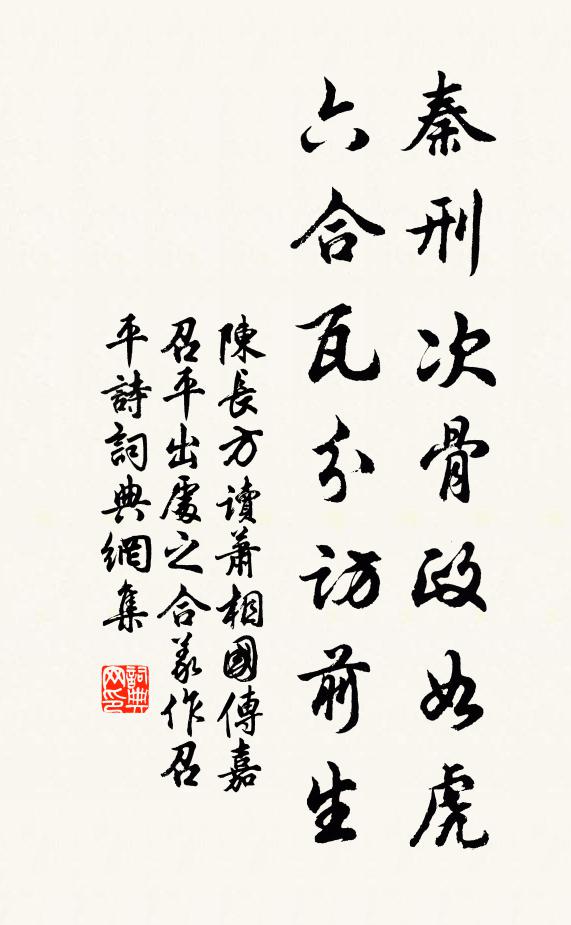 秦刑次骨政如虎
六合瓦分訪前生
陳長方讀蕭相國傳嘉
召平出處之合義作召
平詩詞典網集
詞典
网印